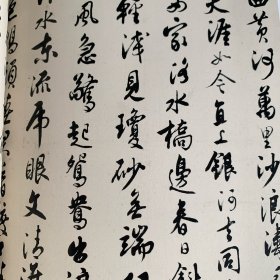 曲黄河萬里沙浪
天涯如今直上銀河去同
女家洛水橋邊春日斜
輕淺見瓊砂無端
風急驚起鴛鴦出
水東流虎眼文清淮